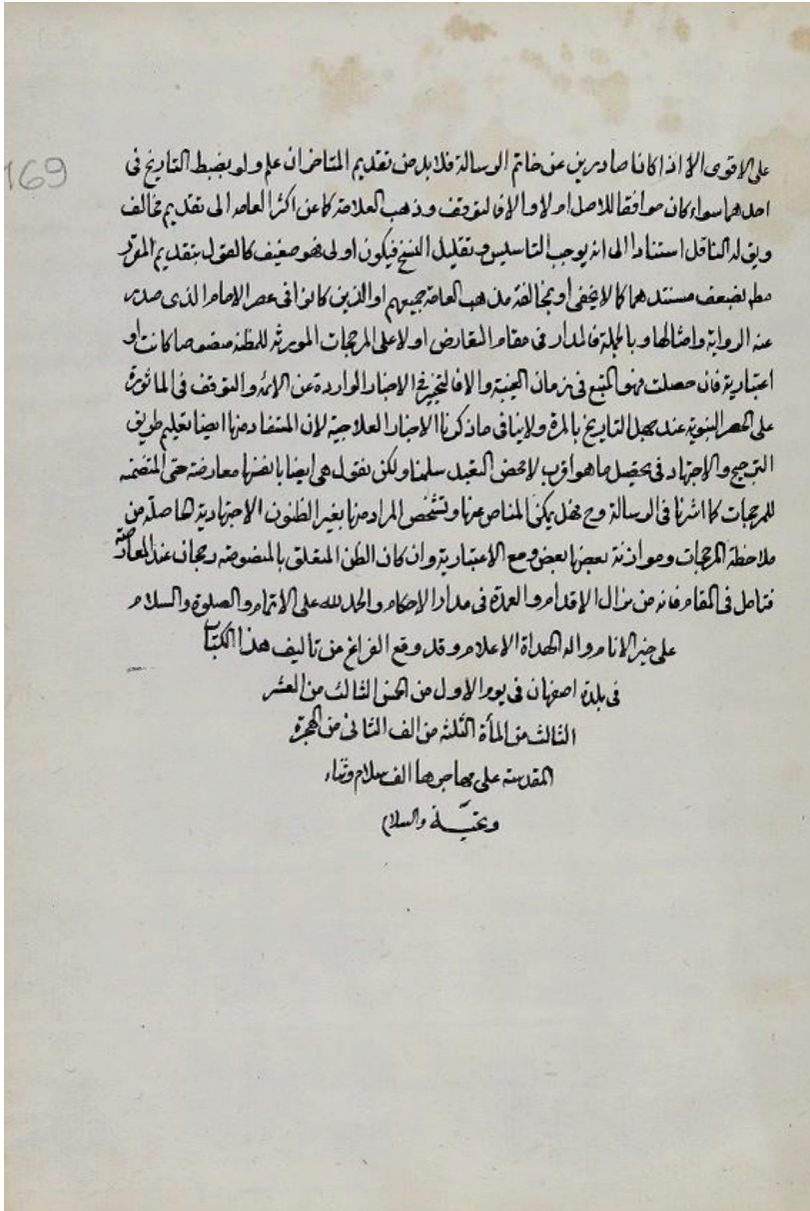 169
على الاقوى الا اذا كانا صادرين عن خاتم الرسالة فلا بد من تقديم المتاخر ان علم ولو بضبط التاريخ فى
احدهما سواء كان موافقا للاصل اولا والا فالتوقف وذهب العلامة كما عن اكثر العامه الى تقديم مخالف
ويق له الناقل استنادا الى انه يوجب التاسيس وتقليل النسخ فيكون اولى فهو ضعيف كالقول بتقديم المقرر
مط لضعف مستندهما كما لا يخفى او بمخالفة مذهب العامة جميعهم او الذين كانوا فى عصر الامام الذى صدر
عنه الرواية وامثالها وبالجملة فالمدار فى مقام التعارض اولا على المرجحات المورثه للمظنه منصوصا كانت او
اعتبارية فان حصلت فهو المتبع فى زمان الغيبة والا فالتخيير فى الاخبار الواردة عن الائمه والتوقف فى الماثورة
على النبوية عند جهل التاريخ بالمرة ولا ينافى ما ذكرنا الاخبار العلاجية لان المستفاد منها ايضا تعليم طريق
الترجيح والاجتهاد فى تحصيل ما هو اقرب لا محض التعبد سلمنا ولكن نقول هى ايضا بانفسها معارضة حتى المتضمنه
للمرجحات كما اشرنا فى الرسالة وح فهل يمكن المناص عنها وتشخص المراد منها بغير الظنون الاجتهادية الحاصلة من
ملاحظة المرجحات وموازنة بعضها بعض ومع الاعتبارية وان كان الظن المتعلق بالمنصوصه رجحان عند المعارضة
فتامل فى المقام فانه من مزال الاقدام والعمدة فى مدار الاحكام والحمد لله على الاتمام والصلوة والسلام
على خير الانام واله الهداة الاعلام وقد وقع الفراغ من تاليف هذا الكتاب
فى بلدة اصفهان فى يوم الاول من الخمس الثالث من العشر
الثالث من المأة الثلثه من الف الثانى من الهجرة
المقدسة على مهاجرها الف سلام وثناء
وتحيّة والسلام